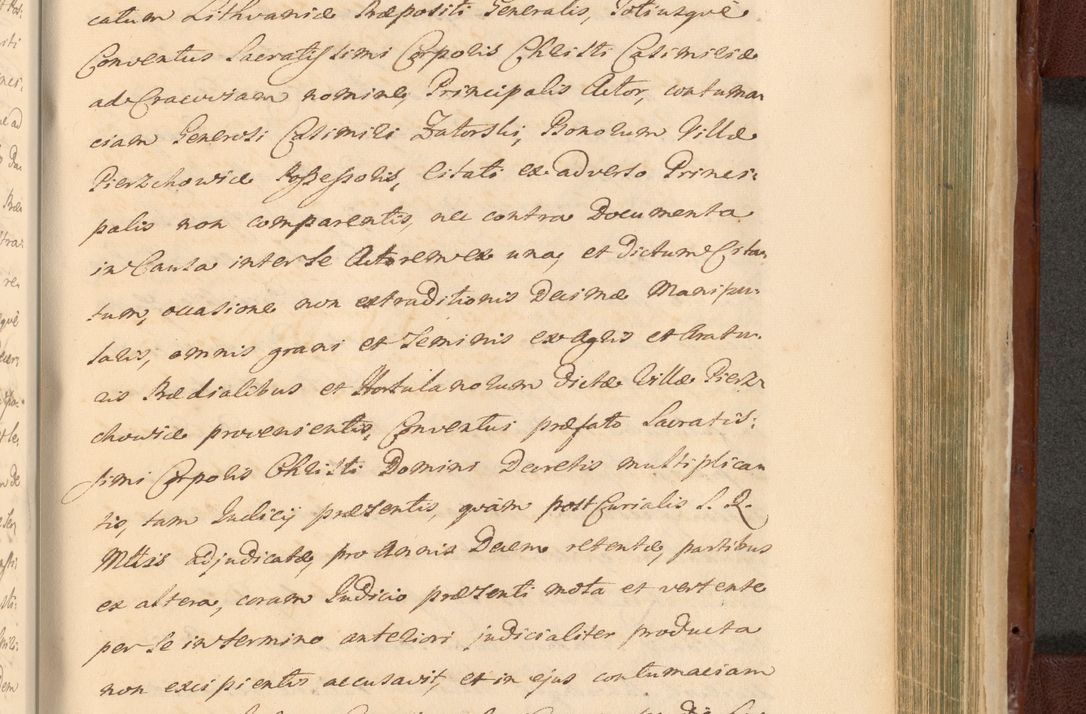 catum Lithvaniæ Præpositi Generalis, Totiusqvè
Conventus Sacratissimi Corporis Christi Casimiriæ
ad Cracoviam nomine, Principalis Actor, contuma-
ciam Generosi Casimiri Zatorski, Bonorum Villæ
Pierzchowice Possessoris, Citati ex adverso Princi-
palis non comparentis, nec contra Documenta
in Causa inter se Actorem ex una, et Dictum Cita-
tum, occasione non extraditionis Decimæ Manipu-
laris, omnis grani et Seminis ex Agris et Aratu-
ris Prædialibus et Hortulanorum Dictæ Villæ Pierz-
chowice provenientis, Conventui præfato Sacratis-
simi Corporis Christi Domini Decretis multiplica-
tis, tam Judicij præsentis, qvàm post Curialis S. R.
Mttis adjudicatæ, pro Annis Decem retentæ, partibus
ex altera, coram Judicio præsenti mota et vertente
per se in termino anteriori judicialiter producta
non excipientis accusavit, et in ejus contumaciam